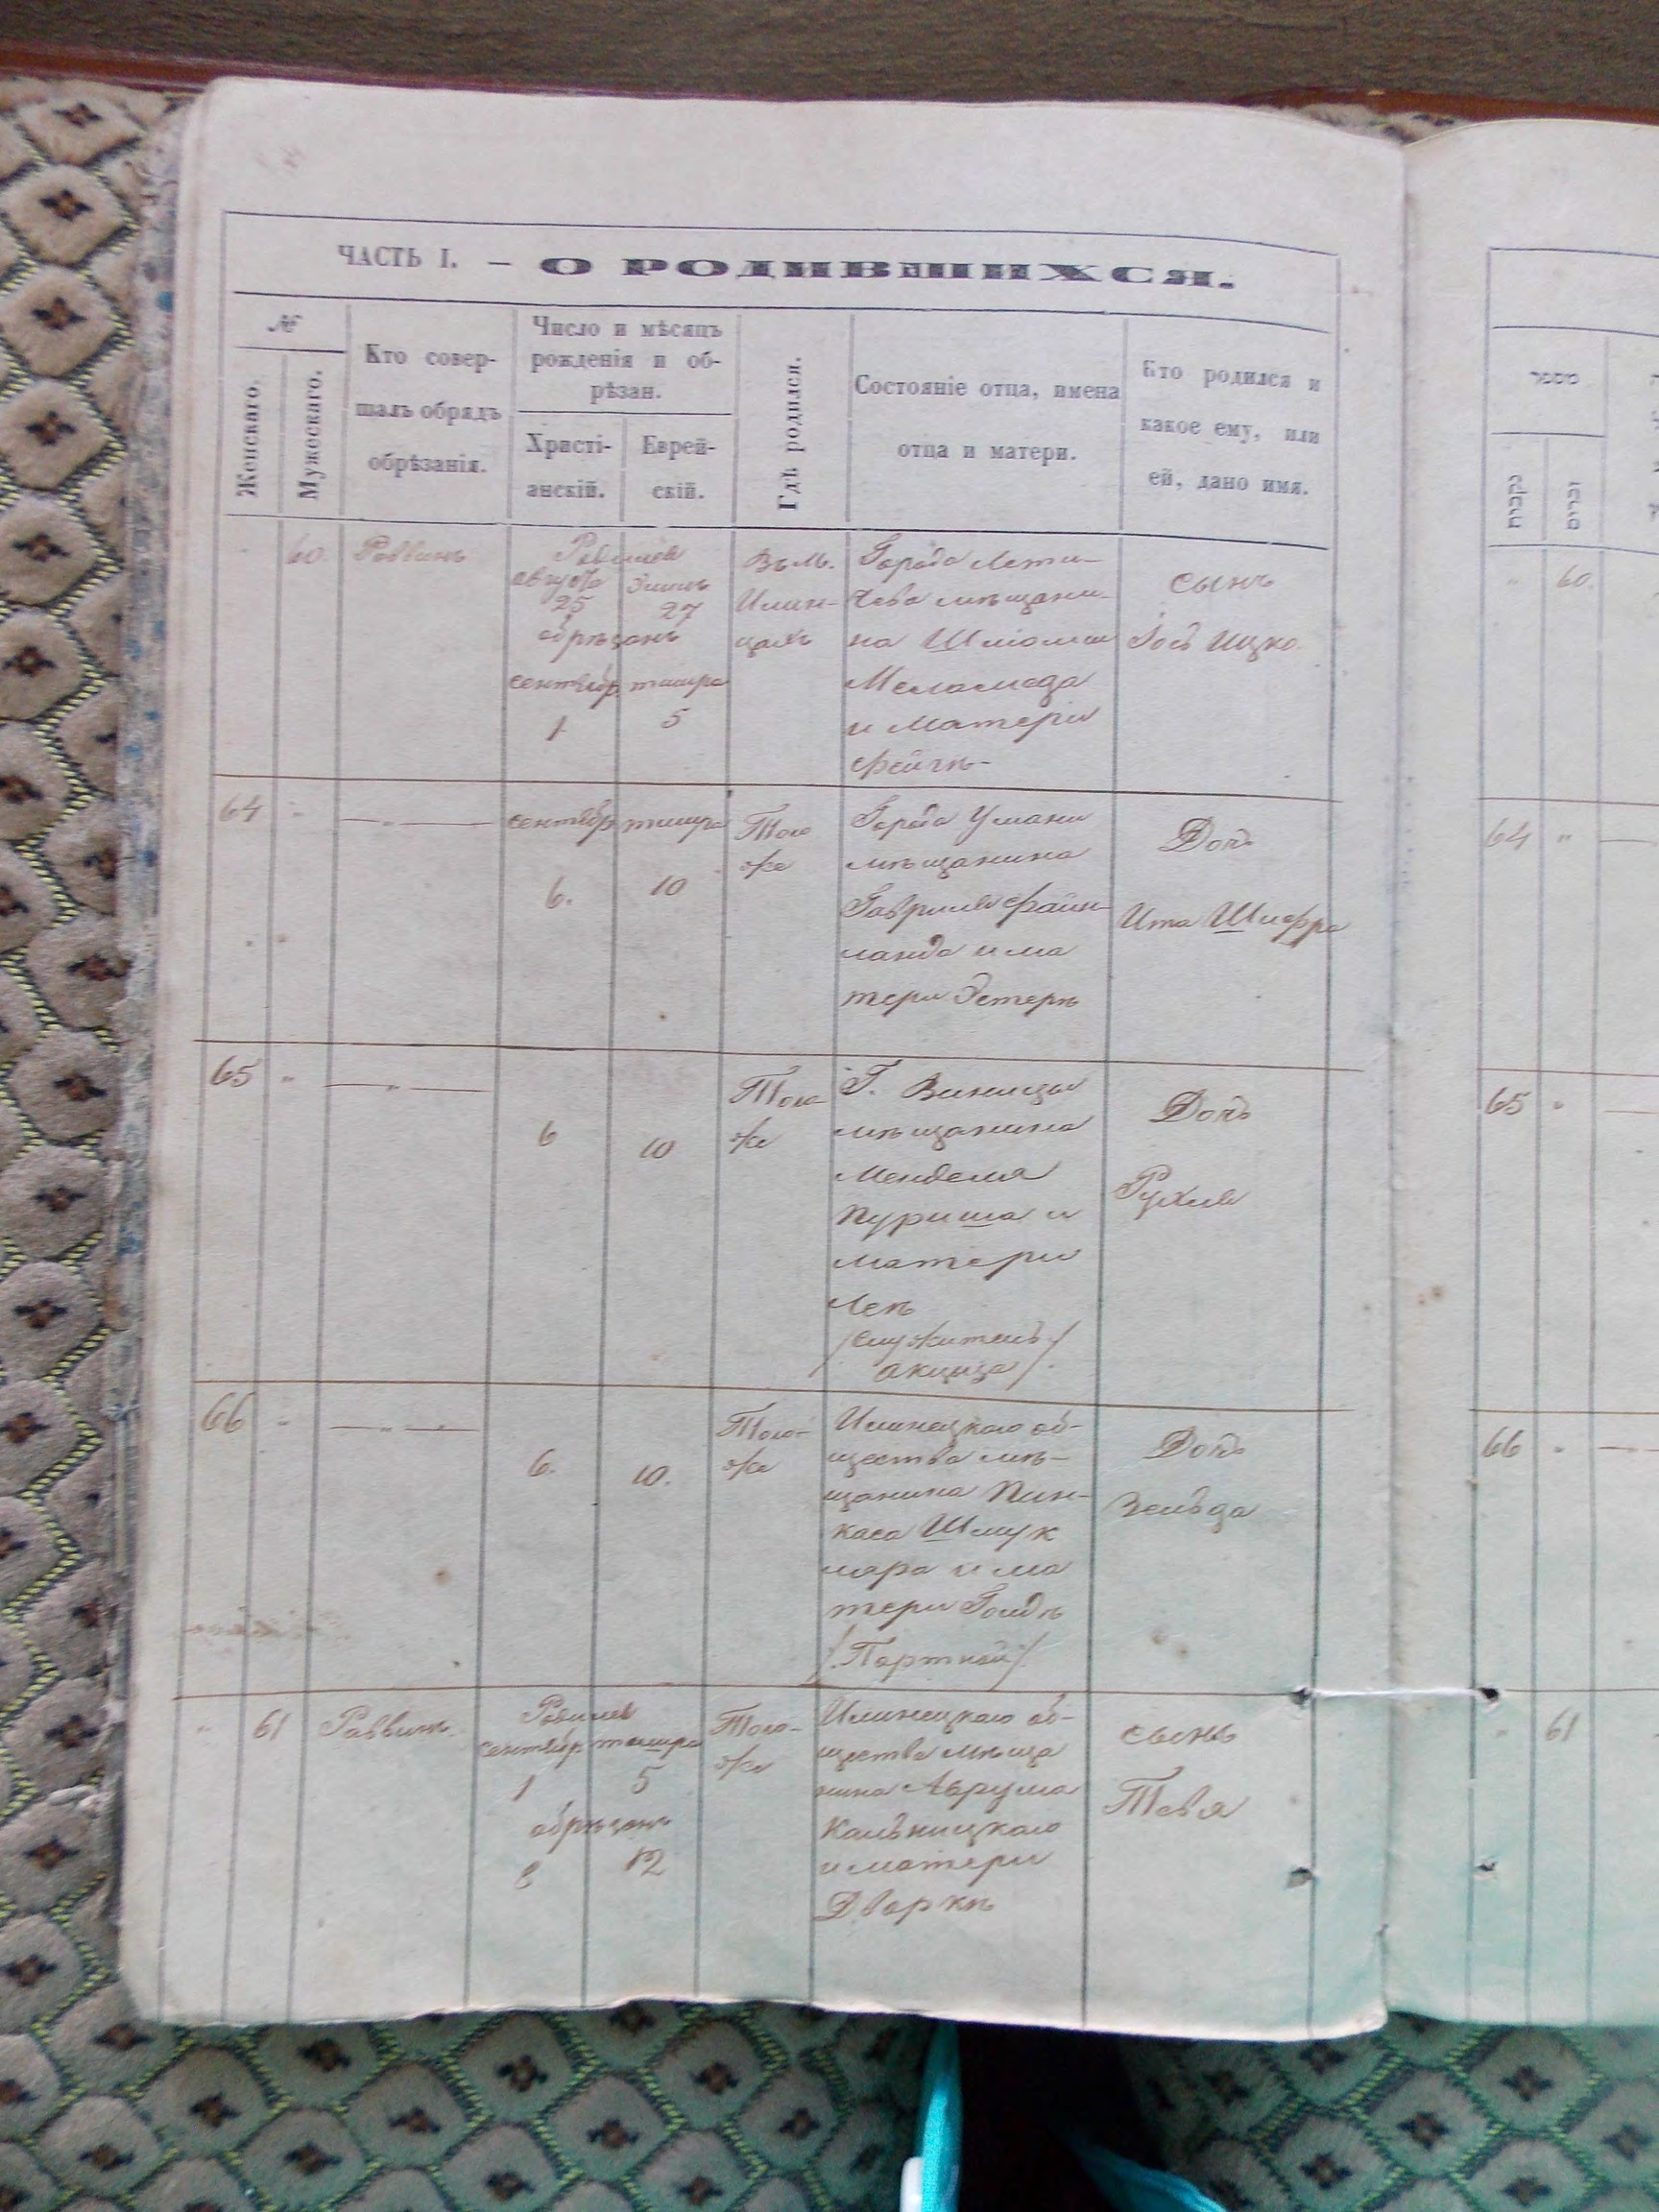 ЧАСТЬ I. — О РОДИВШИХСЯ.
№
Женскаго.
Мужескаго.
Кто совер-
шалъ обрядъ
обрѣзанія.
Число и мѣсяцъ
рожденія и об-
рѣзан.
Христі-
анскій.
Еврей-
скій.
Гдѣ родился.
Состояніе отца, имена
отца и матери.
Кто родился и
какое ему, или
ей, дано имя.
מספר
נקבות
זכרים
60.
Раввинъ
Родился
августа
25
27
обрѣзанъ
сентябр. тишра
1. 5
Въ м.
Илин-
цахъ
Города Лети-
чева мѣщани-
на
Меламеда
и матери
Фейгѣ-
сынъ
Іось Ицко.
60.
64 "
— " —
сентябр. тишра
6. 10
Того
же
Города Умани
мѣщанина
Гавриля Файн-
ланда и ма
тери Эстеръ
Дочь
Ита Шифра
64 "
65 "
— " —
6 10
Того
же
Г. Винницы
мѣщанина
Менделя
Пуриша и
матери
Леѣ
/служитель/
акциза/.
Дочь
Рухля
65 "
66 "
— " —
6. 10.
Того-
же
Илинецкаго об-
щества мѣ-
щанина Пин-
каса Шмук
ляра и ма
тери Гольдѣ
/.Портной/.
Дочь
Зельда
66 "
" 61
Раввинъ
Родился
сентябр тишра
1 5
обрѣзанъ
8 12
Того-
же
Илинецкаго об-
щества мѣща
нина Аврума
Кальницкаго
и матери
Дворкѣ
сынъ
Тевя
" 61